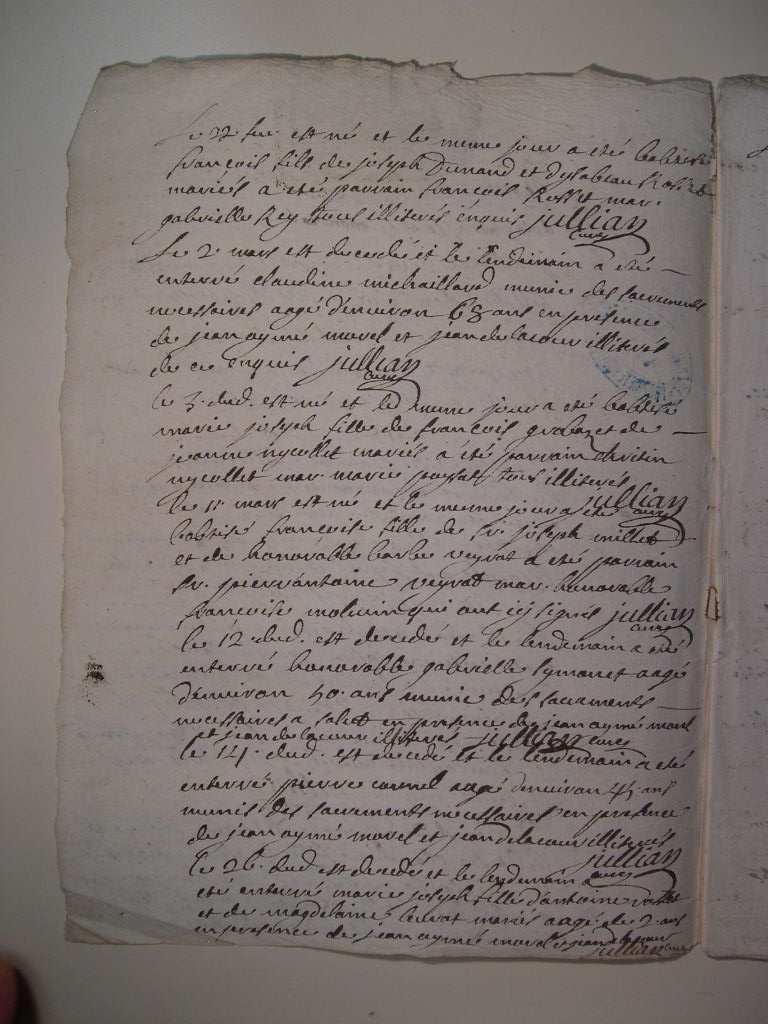 Le 22 fev. est né et le meme jour a eté babtisé
françois fils de joseph Dunand et dysabeau Rosset
mariés a eté parrain françois Rosset mar.
gabrielle Rey tous illiterés enquis jullian
curé
Le 2 mars est decedé et le lendemain a eté
enterré claudine michaillard munie des sacrements
necessaires aagé d'environ 68 ans en presence
de jean aymé morel et jean delacour illiterés
de ce enquis jullian
curé
le 3 dud. est né et le meme jour a eté babtisé
marie joseph fille de françois et de
jeanne nycollet mariés a eté parrain
nycollet mar. marie tous illiterés
jullian
curé
Le 11 mars est né et le meme jour a eté
babtisé françoise fille de Sr. joseph millet
et de honorable barbe veyrat a eté parrain
Sr. pierrantoine veyrat mar. honorable
francoise qui ont icy signés jullian
curé
le 12 dud. est decedé et le lendemain a eté
enterré honorable gabrielle symonet aagé
d'environ 40 ans munie des sacrements
necessaires a salut en presence de jean aymé morel
et jean delacour illiterés jullian curé
le 14 dud. est decedé et le lendemain a eté
enterré pierre cornel aagé denviron 45 ans
munis des sacrements necessaires en presence
de jean aymé morel et jean delacour illiterés
jullian
curé
le 26 dud est decedé et le lendemain a
eté enterré marie joseph fille d'antoine
et de magdelaine mariés aagé de 2 ans
en presence de jean aymé morel et jean delacour
jullian curé